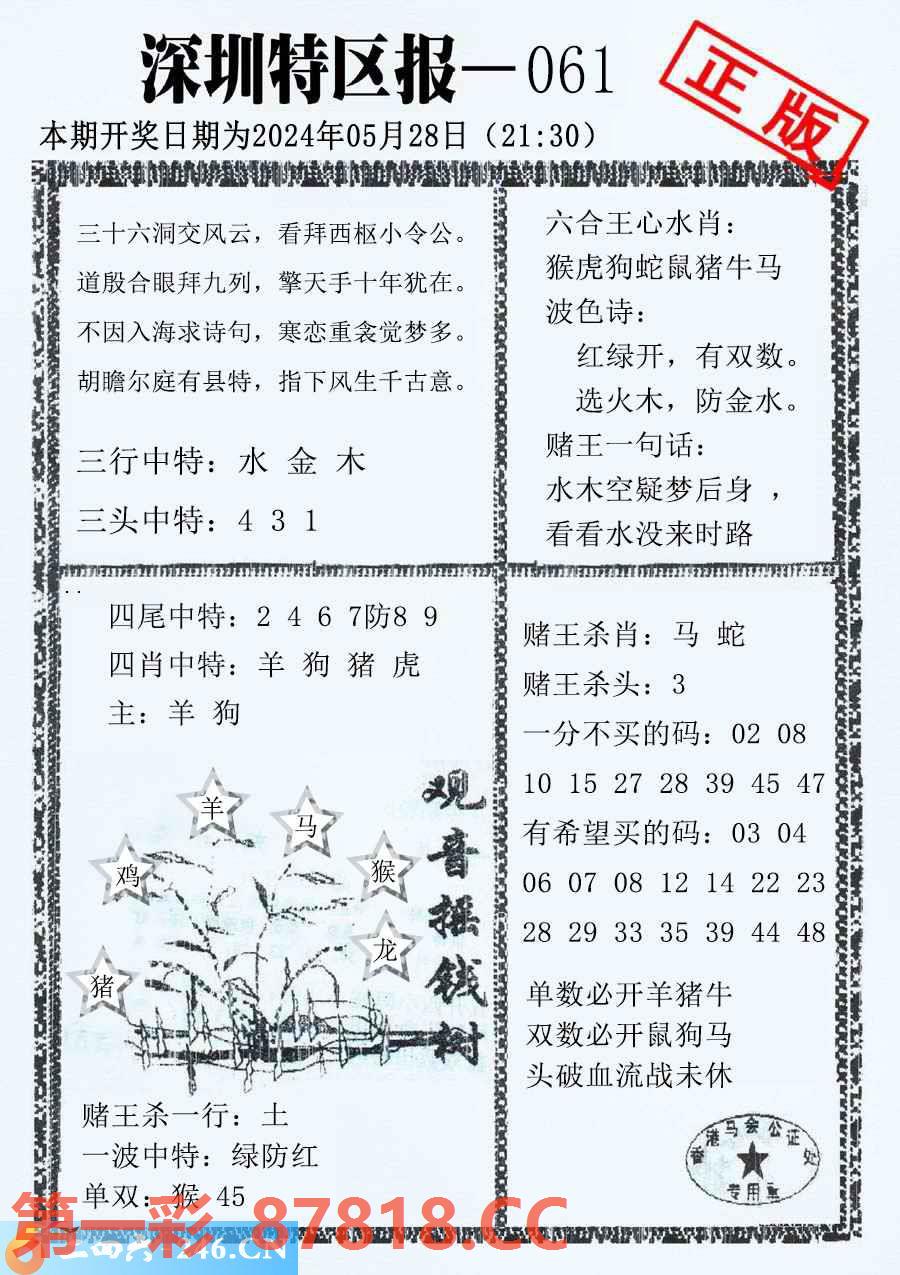 深圳特区报—061
正版
本期开奖日期为2024年05月28日（21:30）
三十六洞交风云，看拜西枢小令公。
道殷合眼拜九列，擎天手十年犹在。
不因入海求诗句，寒恋重衾觉梦多。
胡瞻尔庭有县特，指下风生千古意。
三行中特：水 金 木
三头中特：4 3 1
六合王心水肖：
猴虎狗蛇鼠猪牛马
波色诗：
红绿开，有双数。
选火木，防金水。
赌王一句话：
水木空疑梦后身 ，
看看水没来时路
四尾中特：2 4 6 7防8 9
四肖中特：羊 狗 猪 虎
主：羊 狗
羊
马
鸡
猴
龙
猪
观音摇钱树
赌王杀一行：土
一波中特：绿防红
单双：猴 45
赌王杀肖：马 蛇
赌王杀头：3
一分不买的码：02 08
10 15 27 28 39 45 47
有希望买的码：03 04
06 07 08 12 14 22 23
28 29 33 35 39 44 48
单数必开羊猪牛
双数必开鼠狗马
头破血流战未休
香港马会公证处
专用章
第一彩 87818.CC
246.CN